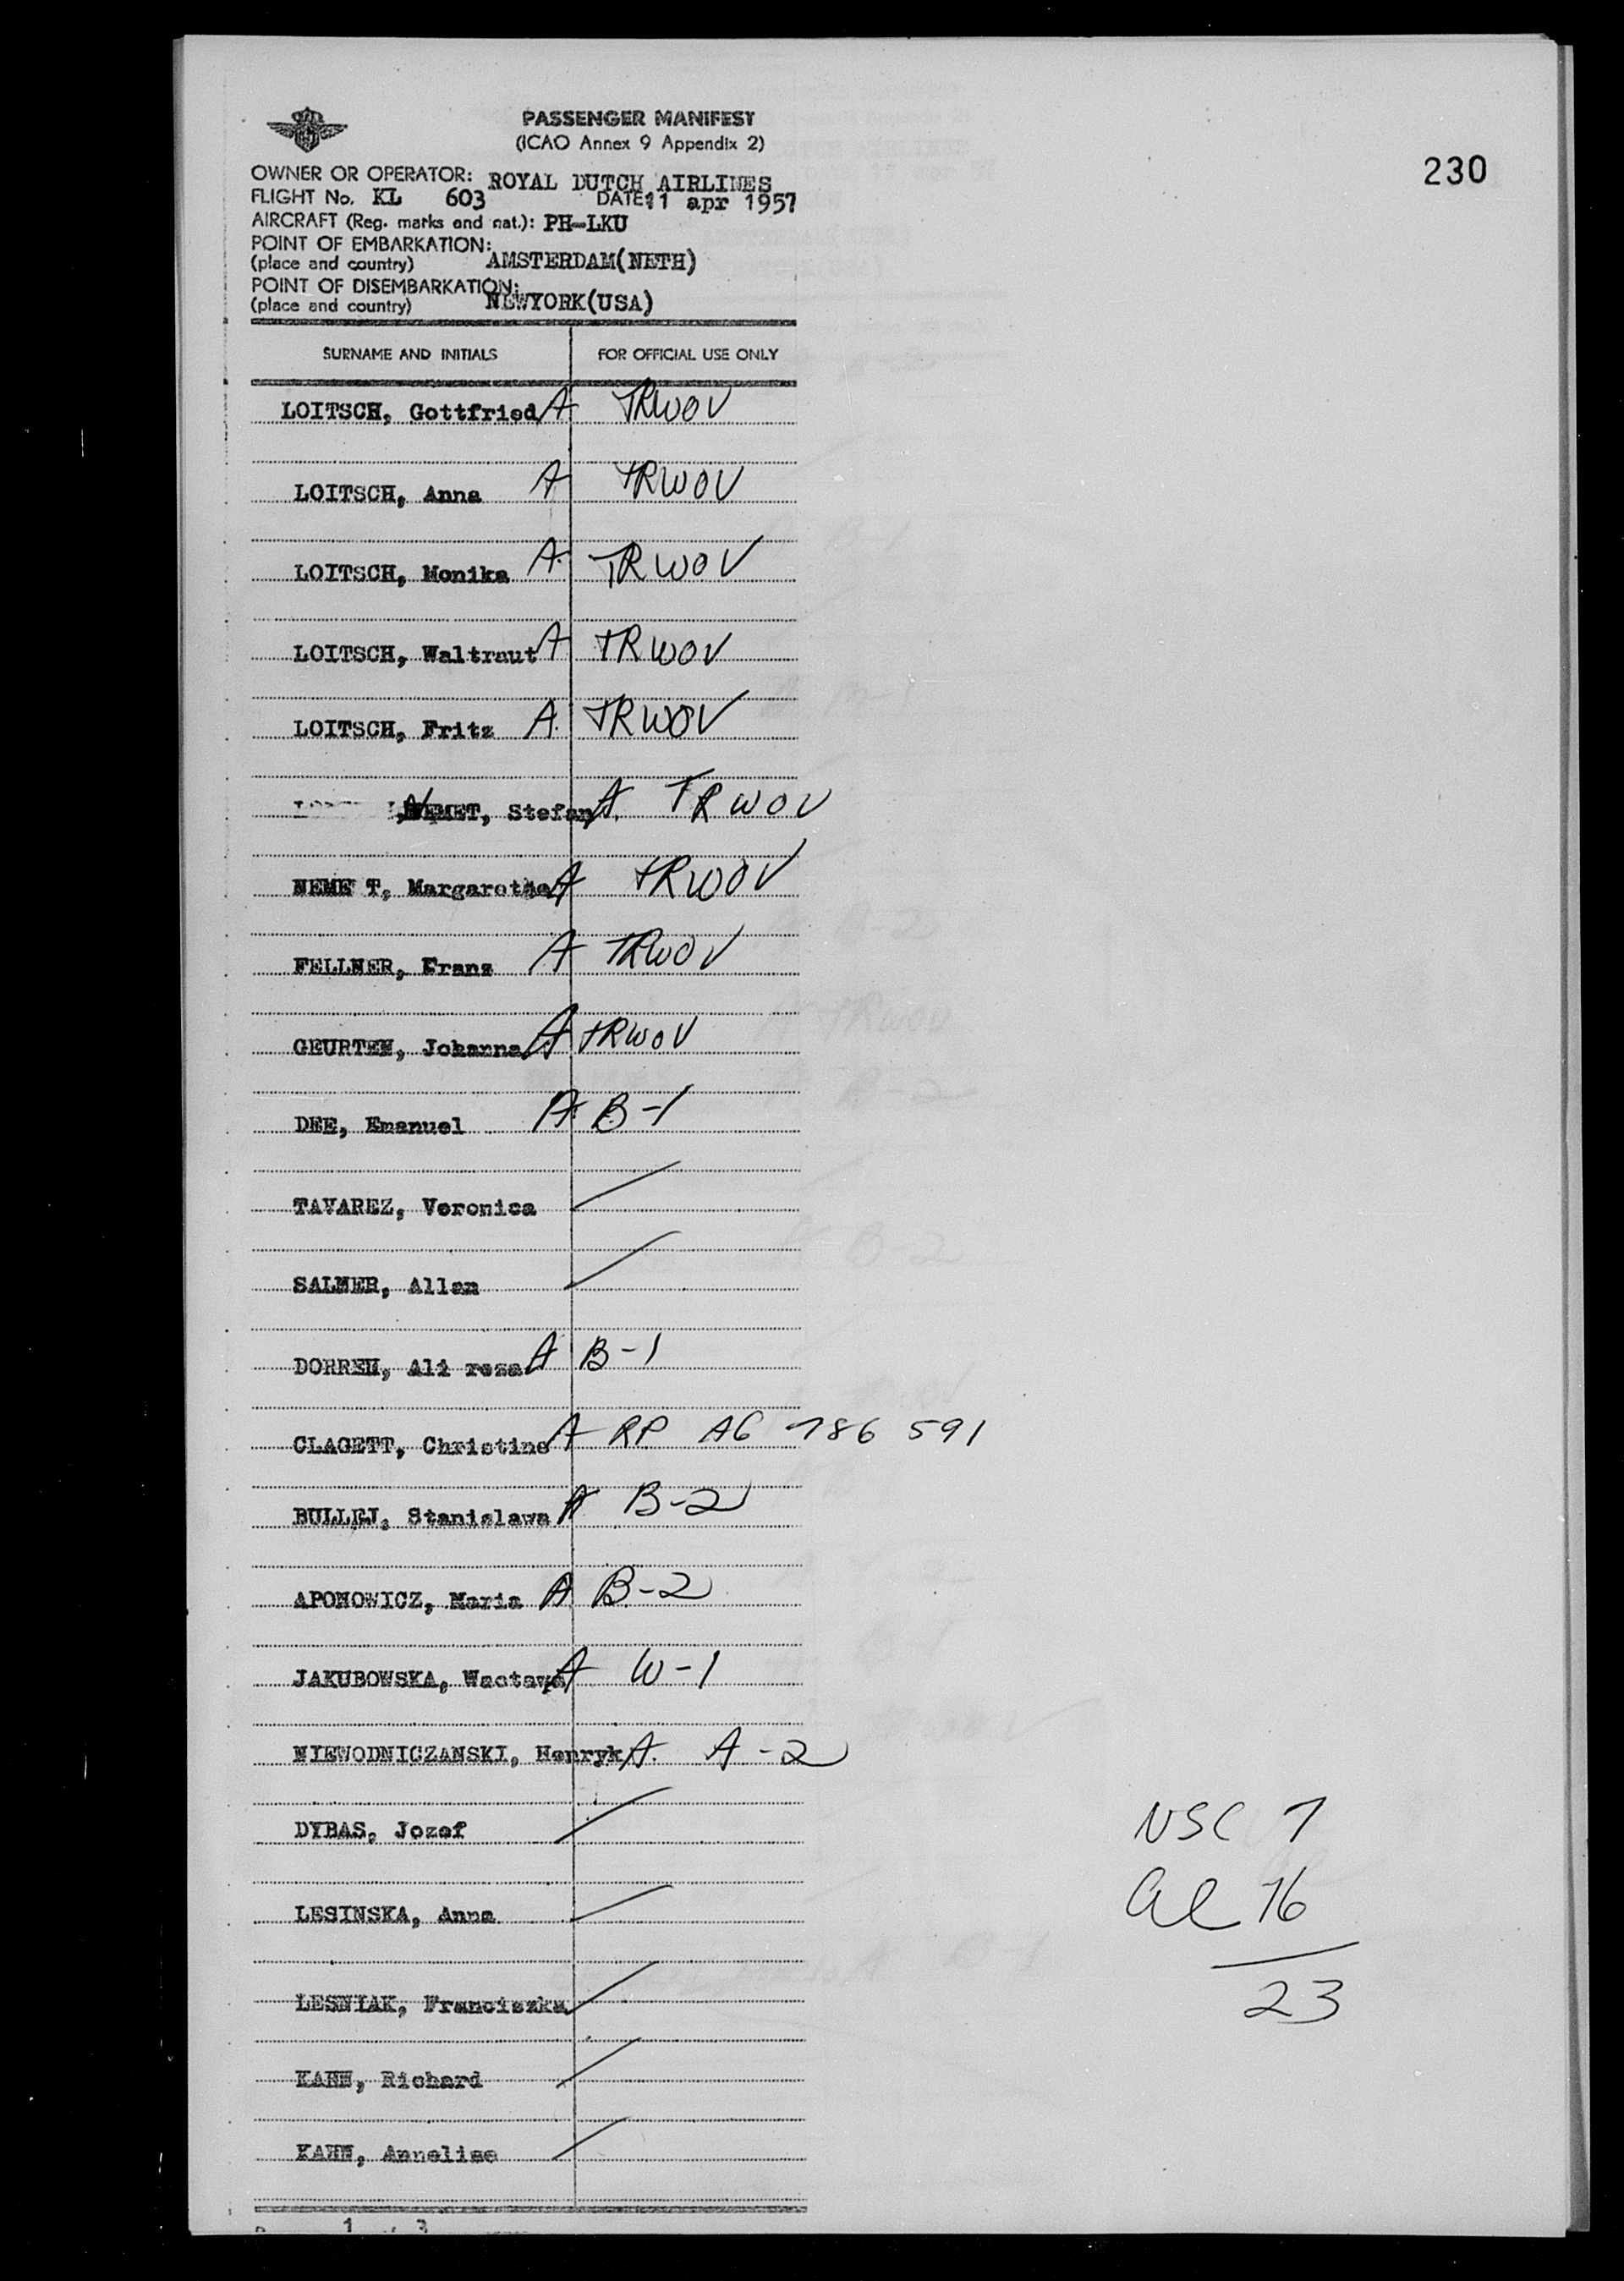 PASSENGER MANIFEST
(ICAO Annex 9 Appendix 2)
230
OWNER OR OPERATOR: ROYAL DUTCH AIRLINES
FLIGHT No. KL 603 DATE: 11 apr 1957
AIRCRAFT (Reg. marks and nat.): PH-LKU
POINT OF EMBARKATION:
(place and country) AMSTERDAM(NETH)
POINT OF DISEMBARKATION:
(place and country) NEWYORK(USA)
SURNAME AND INITIALS FOR OFFICIAL USE ONLY
LOITSCH, Gottfried A TRWOV
LOITSCH, Anna A TRWOV
LOITSCH, Monika A. TRWOV
LOITSCH, Waltraut A TRWOV
LOITSCH, Fritz A. TRWOV
NEMET, Stefan A. TRWOV
NEME T, Margarethe A TRWOV
FELLNER, Franz A TRWOV
GEURTEN, Johanna A TRWOV
DEE, Emanuel A B-1
TAVAREZ, Veronica
SALMER, Allan
DORREH, Ali reza A B-1
CLAGETT, Christine A RP A6 786 591
BULLEJ, Stanislawa A B-2
APONOWICZ, Maria A B-2
JAKUBOWSKA, Wactawa A W-1
NIEWODNICZANSKI, Henryk A. A-2
DYBAS, Jozef
NSC 7
LESINSKA, Anna
al 16
LESNIAK, Franciszka
23
KAHN, Richard
KAHN, Annelise
1 3